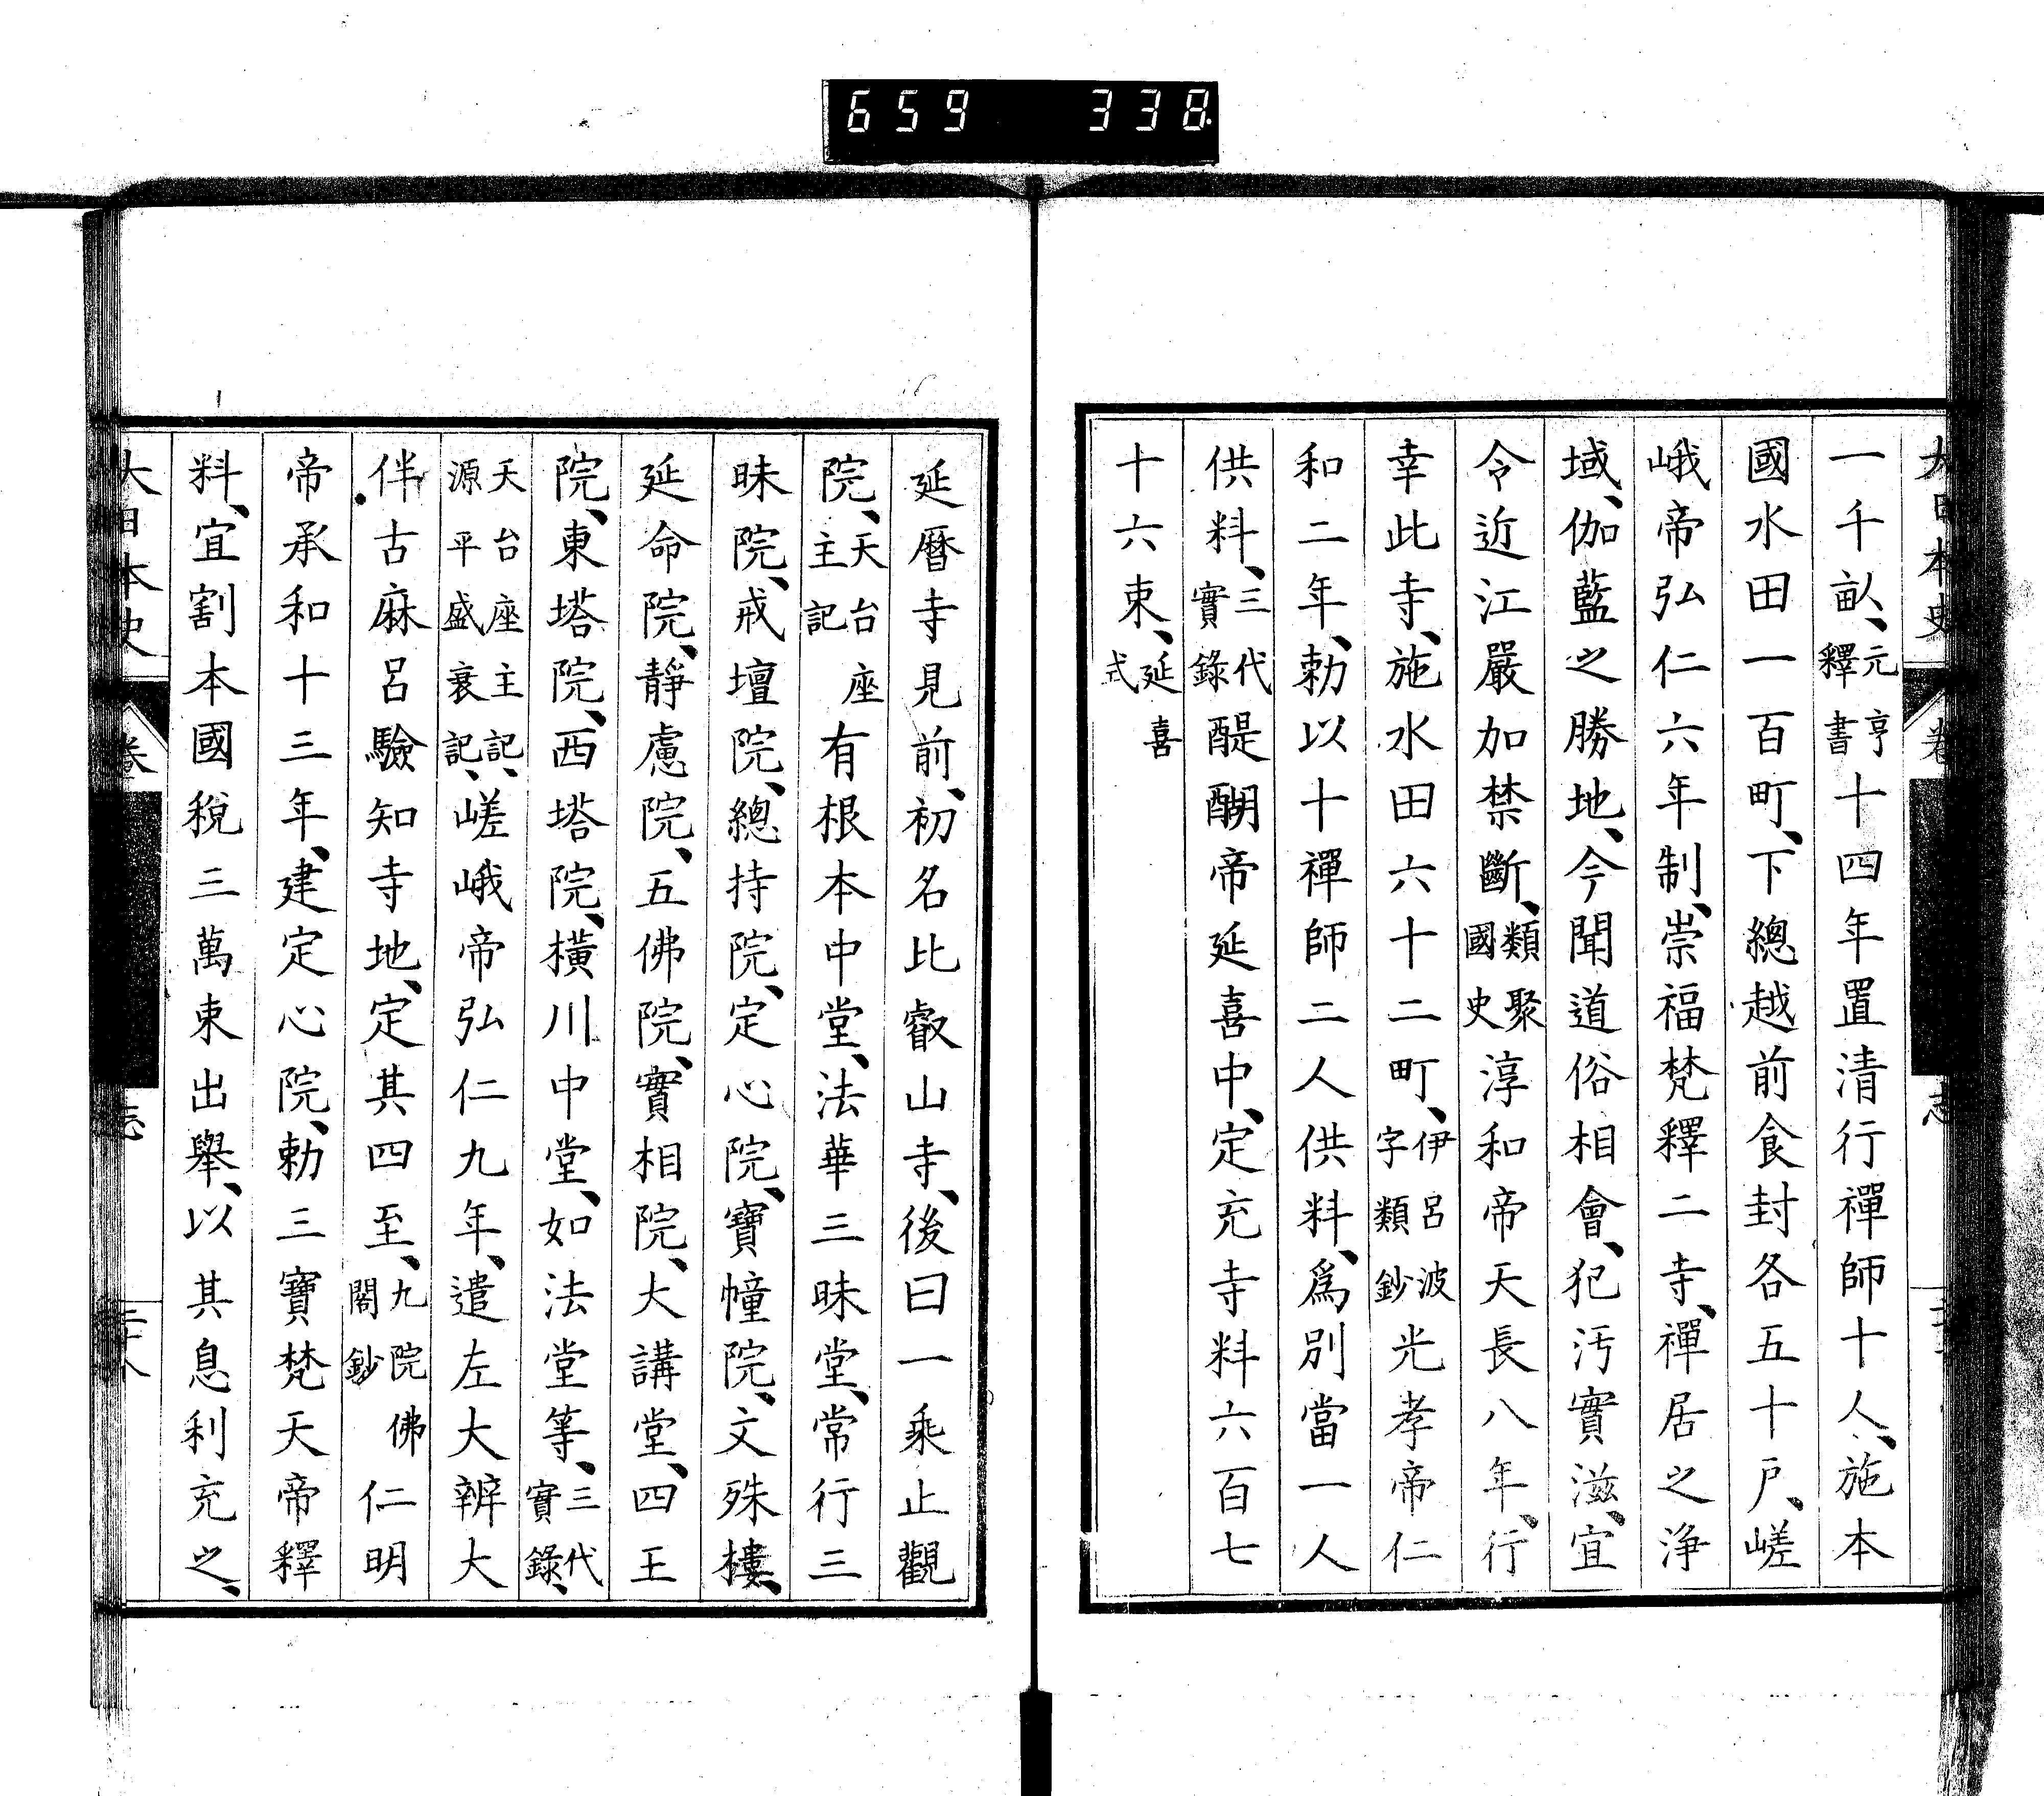 659 338
大日本史 卷 志
一千畝、元亨釋書十四年置清行禪師十人、施本
國水田一百町、下總越前食封各五十戸、嵯
峨帝弘仁六年制、崇福梵釋二寺、禪居之淨
域、伽藍之勝地、今聞道俗相會、犯汚實滋、宜
令近江嚴加禁斷、類聚國史淳和帝天長八年、行
幸此寺、施水田六十二町、伊呂波字類鈔光孝帝仁
和二年、勅以十禪師二人供料、爲別當一人
供料、三代實錄醍醐帝延喜中、定充寺料六百七
十六束、延喜式
延曆寺見前、初名比叡山寺、後曰一乘止觀
院、天台座主記有根本中堂、法華三昧堂、常行三
昧院、戒壇院、總持院、定心院、寶幢院、文殊樓、
延命院、靜慮院、五佛院、實相院、大講堂、四王
院、東塔院、西塔院、橫川中堂、如法堂等、三代實錄、
天台座主記、源平盛衰記、嵯峨帝弘仁九年、遣左大辨大
伴古麻呂驗知寺地、定其四至、九院佛閣鈔仁明
帝承和十三年、建定心院、勅三寶梵天帝釋
料、宜割本國稅三萬束出擧、以其息利充之、
大日本史 卷 志